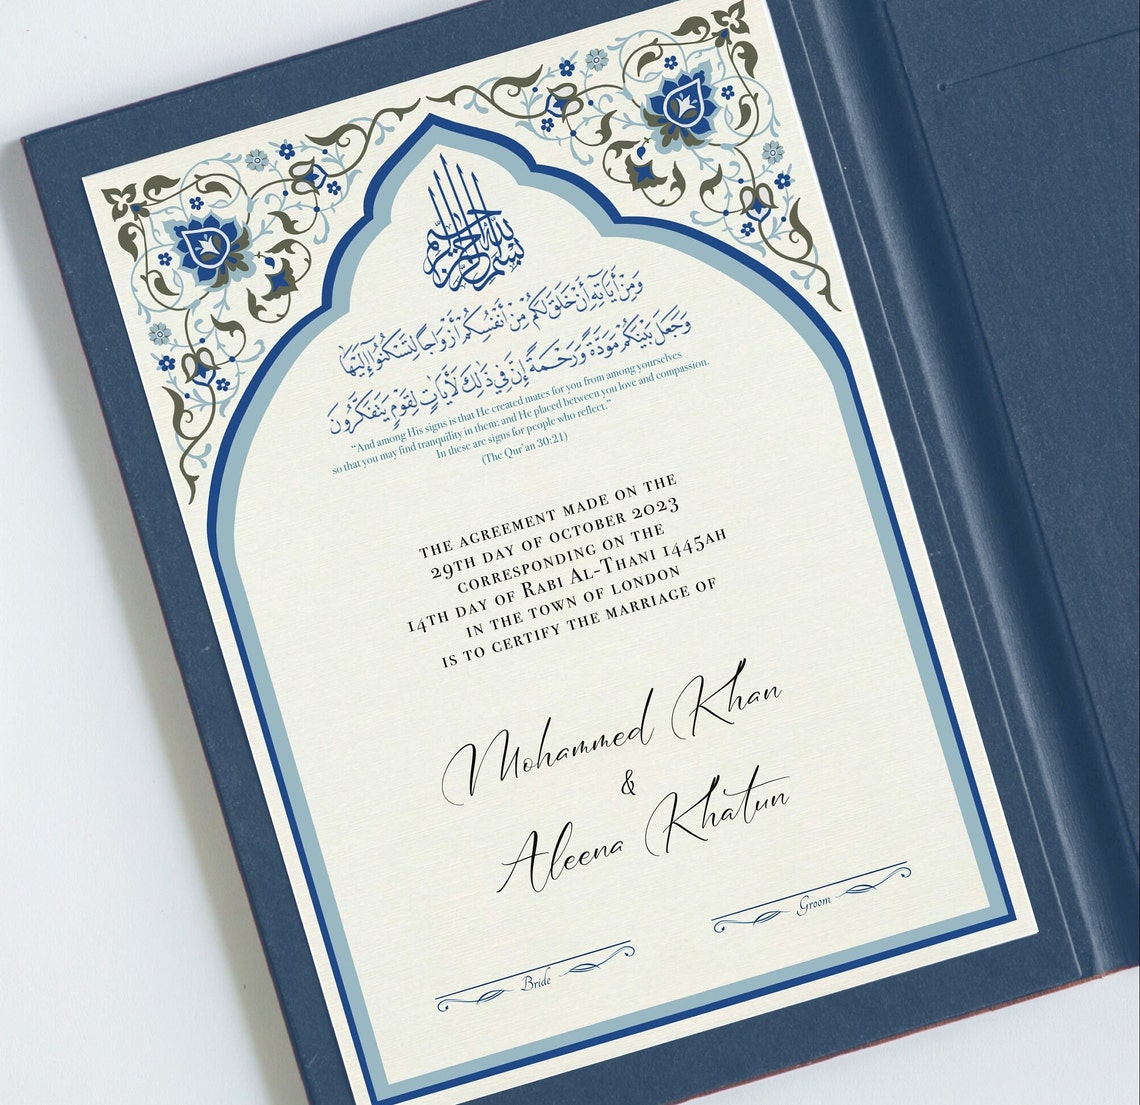 بسم الله الرحمن الرحيم
وَمِنْ أَيَاتِهِ أَنْ خَلَقَ لَكُمْ مِنْ أَنْفُسِكُمْ أَزْوَاجًا لِتَسْكُنُوا إِلَيْهَا
وَجَعَلَ بَيْنَكُمْ مَوَدَّةً وَرَحْمَةً إِنَّ فِي ذَلِكَ لَأَيَاتٍ لِقَوْمٍ يَتَفَكَّرُونَ
“And among His signs is that He created mates for you from among yourselves
so that you may find tranquility in them; and He placed between you love and compassion.
In these are signs for people who reflect.”
(The Qur’an 30:21)
THE AGREEMENT MADE ON THE
29TH DAY OF OCTOBER 2023
CORRESPONDING ON THE
14TH DAY OF RABI AL-THANI 1445AH
IN THE TOWN OF LONDON
IS TO CERTIFY THE MARRIAGE OF
Mohammed Khan
&
Aleena Khatun
Bride
Groom